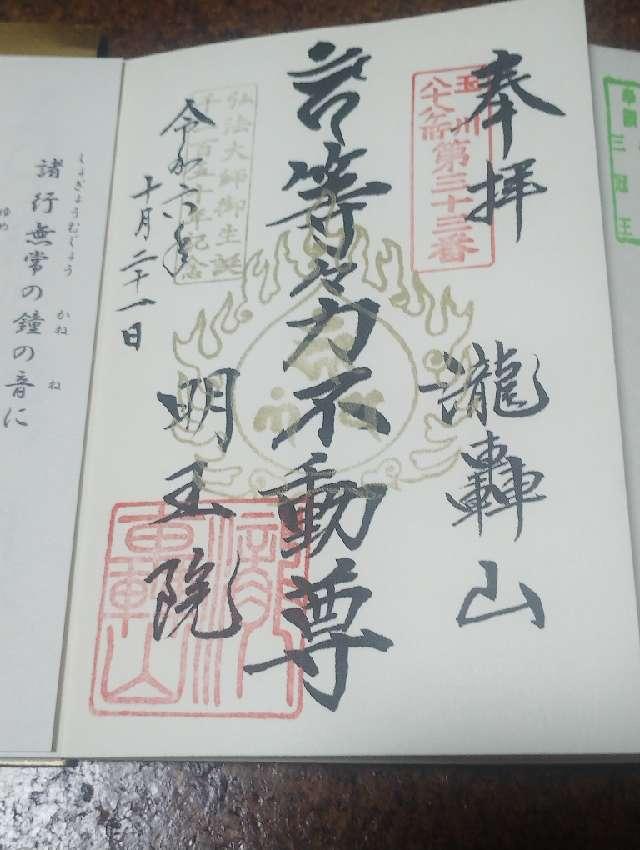 奉拝
玉川八十八ヶ所
第三十三番
瀧轟山
等々力不動尊
明王院
瀧轟山
弘法大師御生誕
千二百五十年記念
令和六年
十月二十一日
しょぎょうむじょう かね ね
諸行無常の鐘の音に
ゆめ